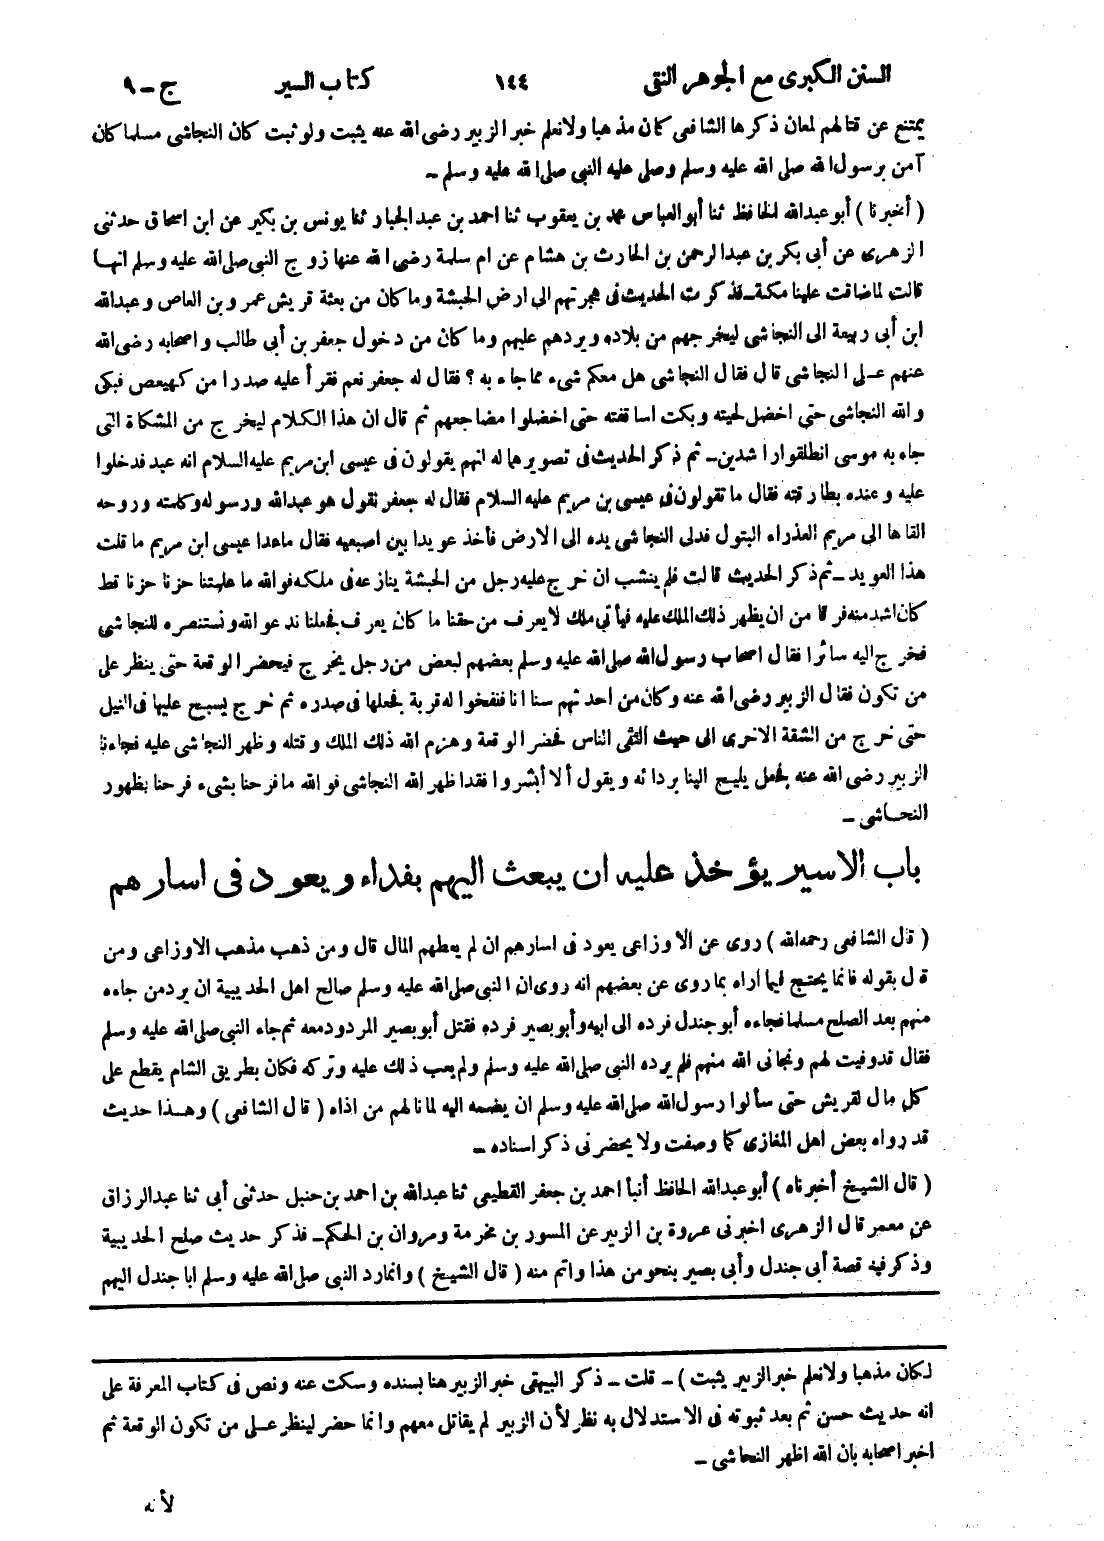 السنن الكبرى مع الجوهر النقى ١٤٤ كتاب السير ج - ٩
يمتنع عن قتالهم لمعان ذكرها الشافعى كان مذهبا ولانعلم خبر الزبير رضى الله عنه يثبت ولو ثبت كان النجاشى مسلما كان
آمن برسول الله صلى الله عليه وسلم وصلى عليه النبى صلى الله عليه وسلم -
( أخبرنا ) أبو عبدالله الحافظ ثنا أبو العباس محمد بن يعقوب ثنا احمد بن عبد الجبار ثنا يونس بن بكير عن ابن اسحاق حدثنى
الزهرى عن أبى بكر بن عبدالرحمن بن الحارث بن هشام عن ام سلمة رضى الله عنها زوج النبى صلى الله عليه وسلم انها
قالت لما ضاقت علينا مكة - فذكرت الحديث فى هجرتهم الى ارض الحبشة وما كان من بعثة قريش عمرو بن العاص وعبدالله
ابن أبى ربيعة الى النجاشى ليخرجهم من بلاده ويردهم عليهم وما كان من دخول جعفر بن أبى طالب واصحابه رضى الله
عنهم على النجاشى قال فقال النجاشى هل معكم شىء مما جاء به ؟ فقال له جعفر نعم فقرأ عليه صدرا من كهيعص فبكى
والله النجاشى حتى اخضل لحيته وبكت اساقفته حتى اخضلوا مضاجعهم ثم قال ان هذا الكلام ليخرج من المشكاة التى
جاء به موسى انطلقوا راشدين - ثم ذكر الحديث فى تصويرهما له انهم يقولون فى عيسى ابن مريم عليه السلام انه عبد فدخلوا
عليه وعنده بطارقته فقال ما تقولون فى عيسى بن مريم عليه السلام فقال له جعفر نقول هو عبدالله ورسوله وكلمته وروحه
القاها الى مريم العذراء البتول فدلى النجاشى يده الى الارض فأخذ عويدا بين اصبعيه فقال ماعدا عيسى ابن مريم ما قلت
هذا العويد - ثم ذكر الحديث قالت فلم ينشب ان خرج عليه رجل من الحبشة ينازعه فى ملكه فوالله ما علمتنا حزنا حزنا قط
كان اشد منه فرقا من ان يظهر ذلك الملك عليه فيأتى ملك لا يعرف من حقنا ما كان يعرف فجعلنا ندعو الله ونستنصره للنجاشى
فخرج اليه سائرا فقال اصحاب رسول الله صلى الله عليه وسلم بعضهم لبعض من رجل يخرج فيحضر الوقعة حتى ينظر على
من تكون فقال الزبير رضى الله عنه وكان من احدثهم سنا انا فنفخوا له قربة فجعلها فى صدره ثم خرج يسبح عليها فى النيل
حتى خرج من الشقة الاخرى الى حيث التقى الناس فحضر الوقعة وهزم الله ذلك الملك وقتله وظهر النجاشى عليه فجاءنا
الزبير رضى الله عنه فجعل يليح الينا بردائه ويقول ألا أبشروا فقد اظهر الله النجاشى فوالله ما فرحنا بشىء فرحنا بظهور
النجاشى -
باب الاسير يؤخذ عليه ان يبعث اليهم بفداء ويعود فى اسارهم
( قال الشافعى رحمه الله ) روى عن الاوزاعى يعود فى اسارهم ان لم يعطهم المال قال ومن ذهب مذهب الاوزاعى ومن
قال بقوله فانما يحتج فيما اراه بما روى عن بعضهم انه روى ان النبى صلى الله عليه وسلم صالح اهل الحديبية ان يرد من جاءه
منهم بعد الصلح مسلما فجاءه أبو جندل فرده الى ابيه وأبو بصير فرده فقتل أبو بصير المردود معه ثم جاء النبى صلى الله عليه وسلم
فقال قد وفيت لهم ونجانى الله منهم فلم يرده النبى صلى الله عليه وسلم ولم يعب ذلك عليه وتركه فكان بطريق الشام يقطع على
كل مال لقريش حتى سألوا رسول الله صلى الله عليه وسلم ان يضمه اليه لما نالهم من اذاه ( قال الشافعى ) وهذا حديث
قد رواه بعض اهل المغازى كما وصفت ولا يحضرنى ذكر اسناده -
( قال الشيخ أخبرناه ) أبو عبدالله الحافظ أنبأ احمد بن جعفر القطيعى ثنا عبدالله بن احمد بن حنبل حدثنى أبى ثنا عبدالرزاق
عن معمر قال الزهرى اخبرنى عروة بن الزبير عن المسور بن مخرمة ومروان بن الحكم - فذكر حديث صلح الحديبية
وذكر فيه قصة أبى جندل وأبى بصير بنحو من هذا واتم منه ( قال الشيخ ) وانما رد النبى صلى الله عليه وسلم ابا جندل اليهم
لكان مذهبا ولانعلم خبر الزبير يثبت ) - قلت - ذكر البيهقى خبر الزبير هنا بسنده وسكت عنه ونص فى كتاب المعرفة على
انه حديث حسن ثم بعد ثبوته فى الاستدلال به نظر لأن الزبير لم يقاتل معهم وانما حضر لينظر على من تكون الوقعة ثم
اخبر اصحابه بان الله اظهر النجاشى -
لأنه